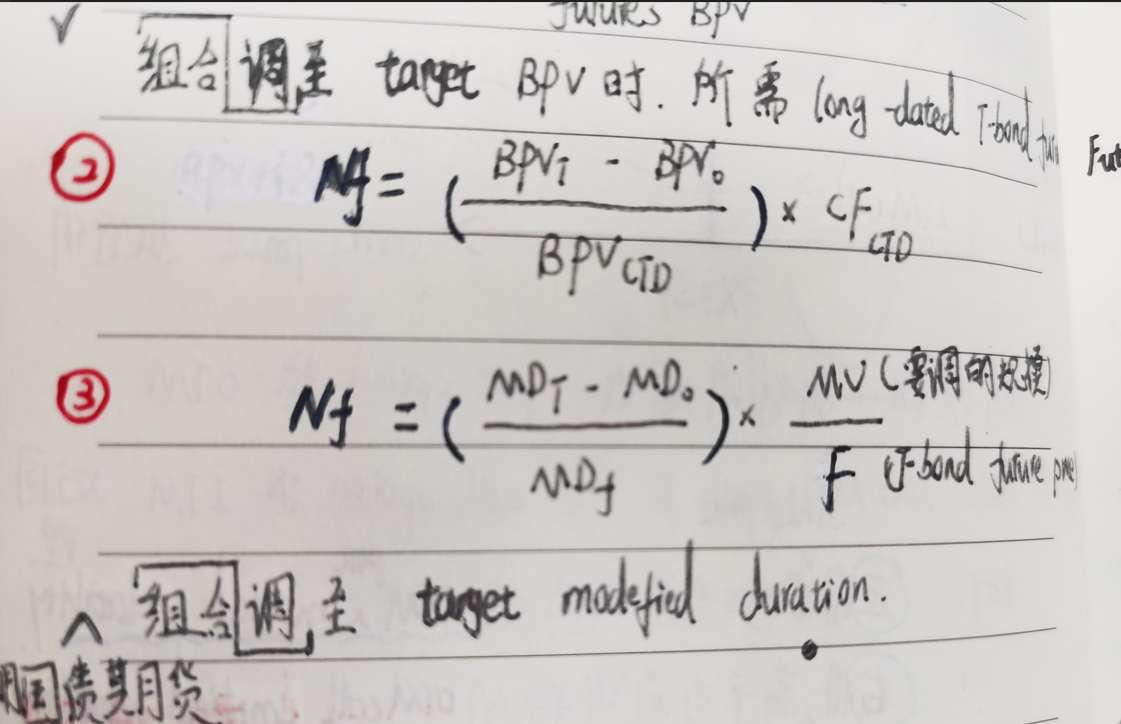 futures BPV
✓ 组合调至 target BPV时. 所需 long-dated T-bond
② Nf = (BPV_T - BPV_0 / BPV_CTD) × CF_CTD
③ Nf = (MD_T - MD_0 / MD_f) × MV (要调的规模) / F (T-bond future
组合调至 target modefied duration.
国债期货